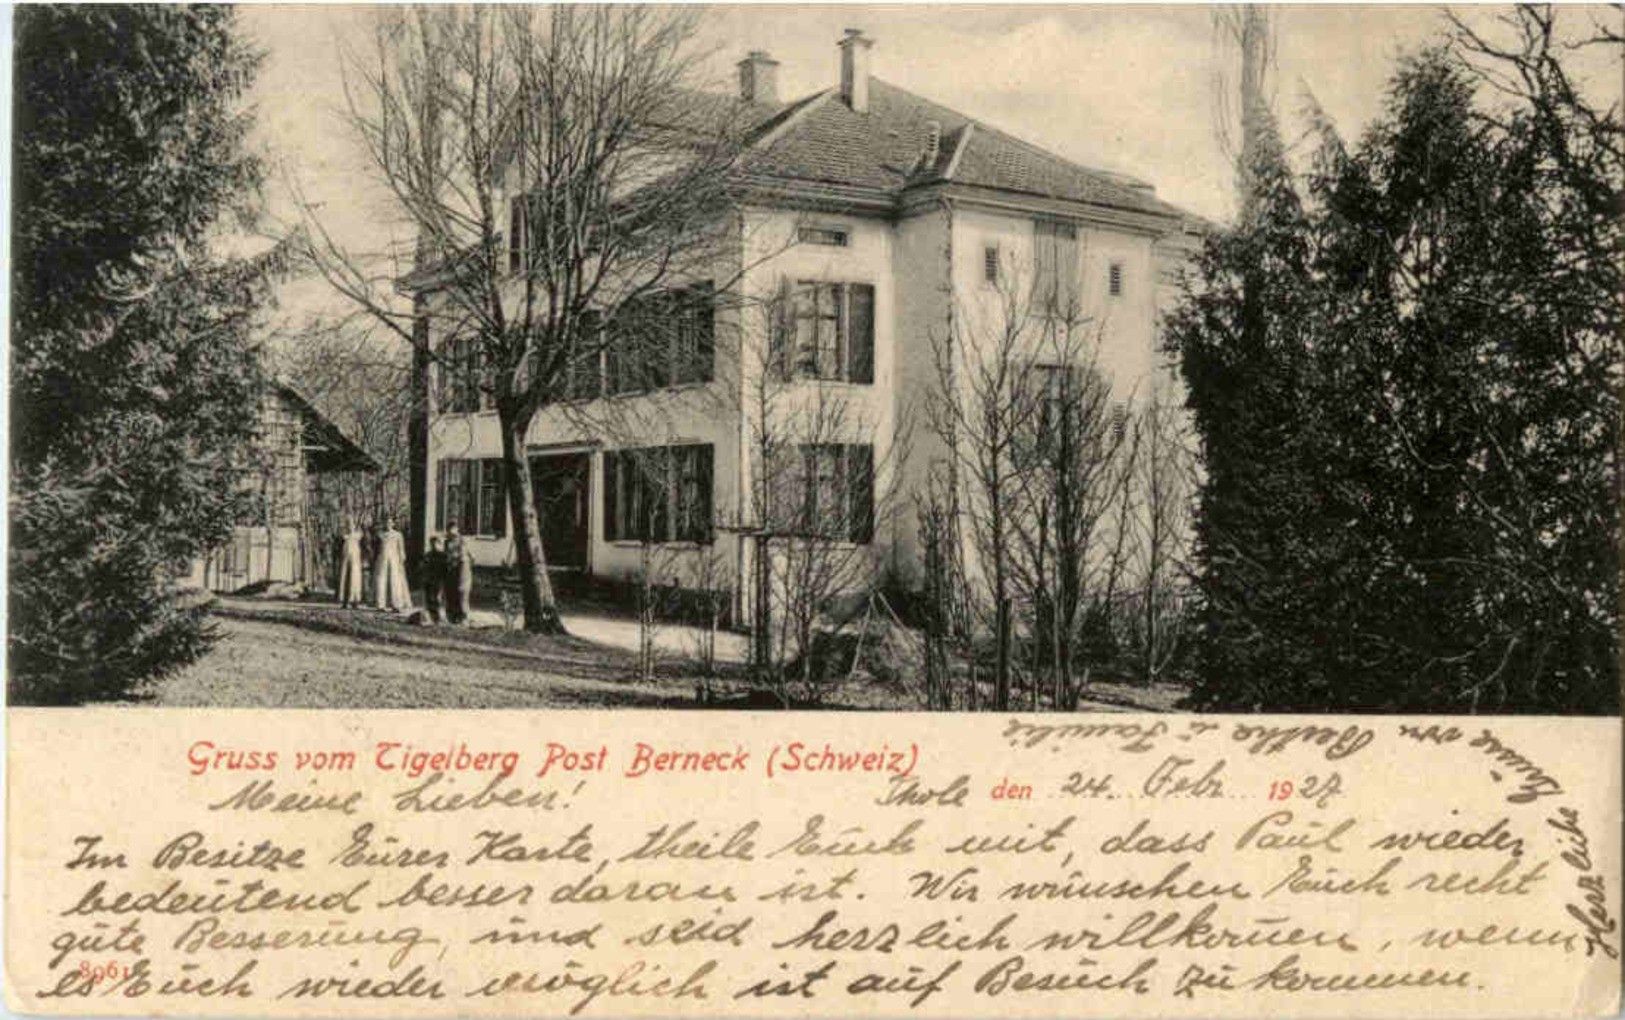 Gruss vom Tigelberg Post Berneck (Schweiz)
Meine Lieben!
Thole den 24. Febr. 1927
Im Besitze Eurer Karte, theile Euch mit, dass Paul wieder
bedeutend besser daran ist. Wir wünschen Euch recht
gute Besserung, und seid herzlich willkommen, wenn
es Euch wieder möglich ist auf Besuch zu kommen.
Herzliche Grüsse von Bertha u Familie
8961